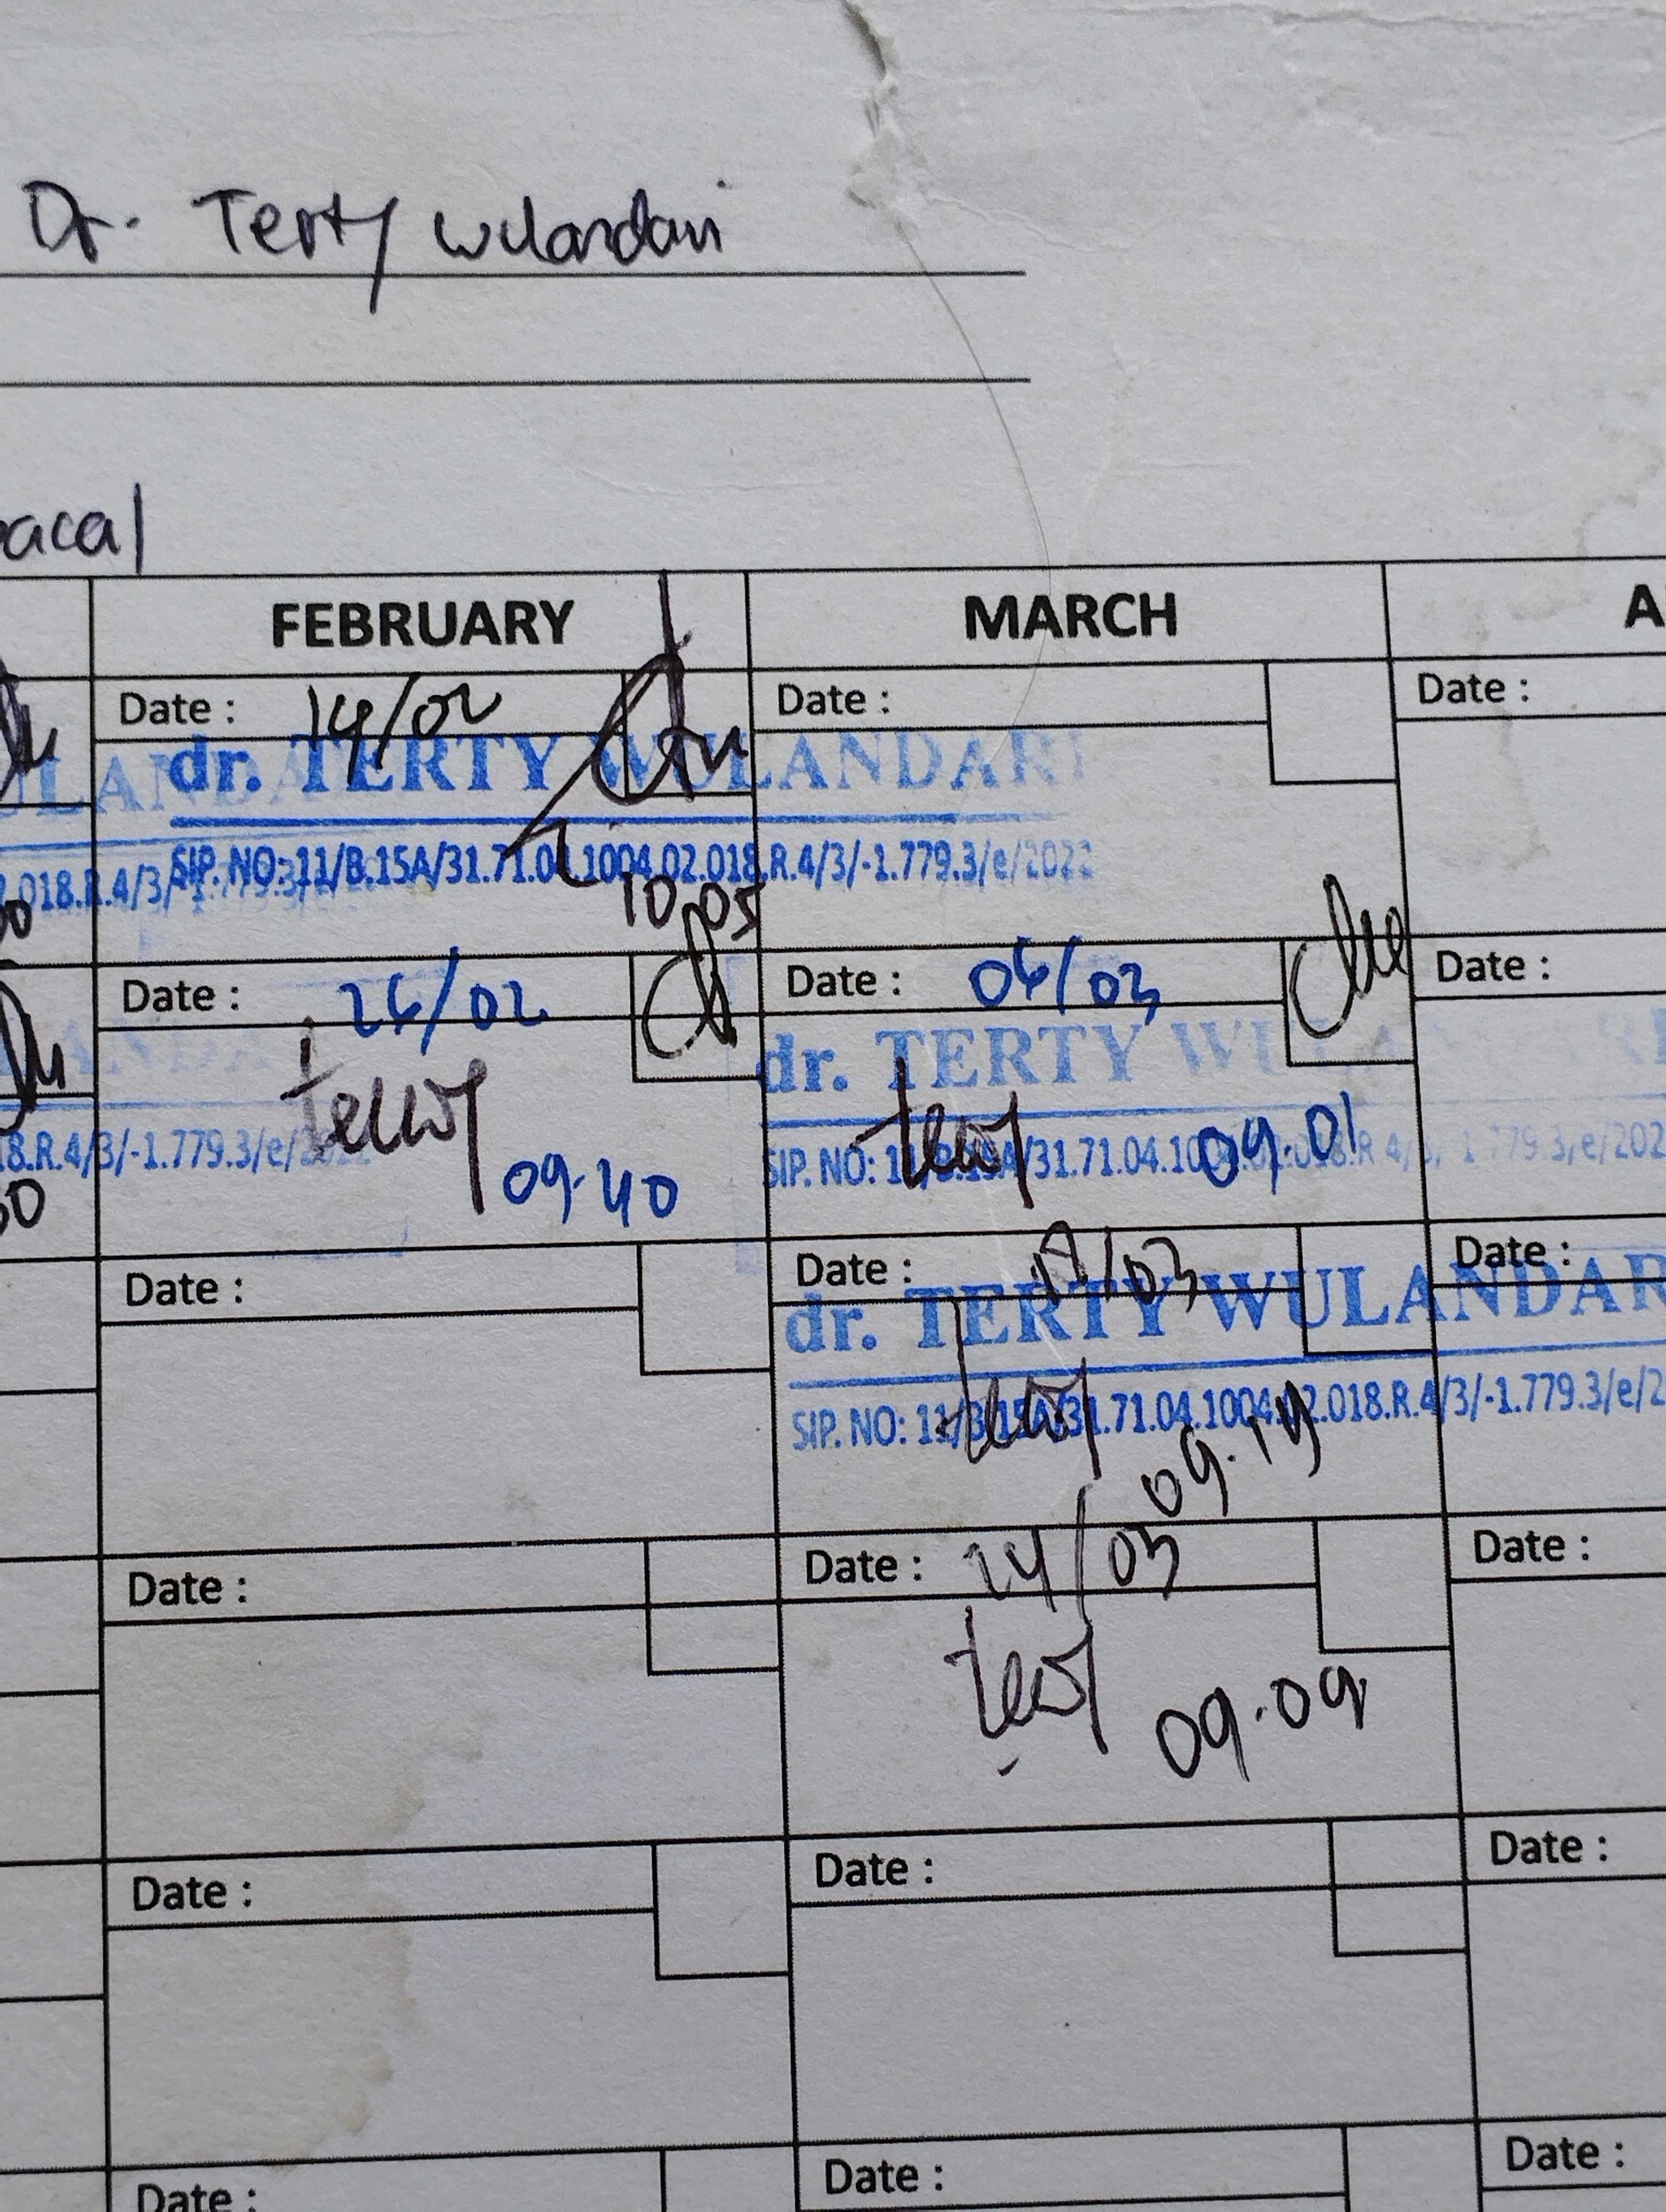 Dr. Terty Wulandari
FEBRUARY
MARCH
Date : 14/02
Date :
Date :
dr. TERTY WULANDARI
SIP. NO: 11/B.15A/31.71.04.1004.02.018.R.4/3/-1.779.3/e/2022
10.05
Date : 26/02
Date : 06/03
Date :
dr. TERTY WULANDARI
SIP. NO: 11/B.15A/31.71.04.1004.02.018.R.4/3/-1.779.3/e/202
8.R.4/3/-1.779.3/e/2022
09.40
09.01
Date :
Date : 17/03
Date :
dr. TERTY WULANDAR
SIP. NO: 11/B.15A/31.71.04.1004.02.018.R.4/3/-1.779.3/e/2
09.19
Date :
Date : 24/03
Date :
09.09
Date :
Date :
Date :
Date :
Date :
Date :